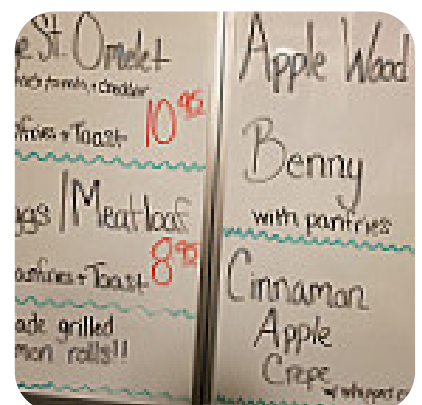 e St. Omelet
+ Cheddar
nfries + Toast 10 95
ggs / Meatloaf
8 95
anfries + Toast
ade grilled
mon rolls!!
Apple Wood
Benny
with panfries
Cinnamon
Apple
Crepe